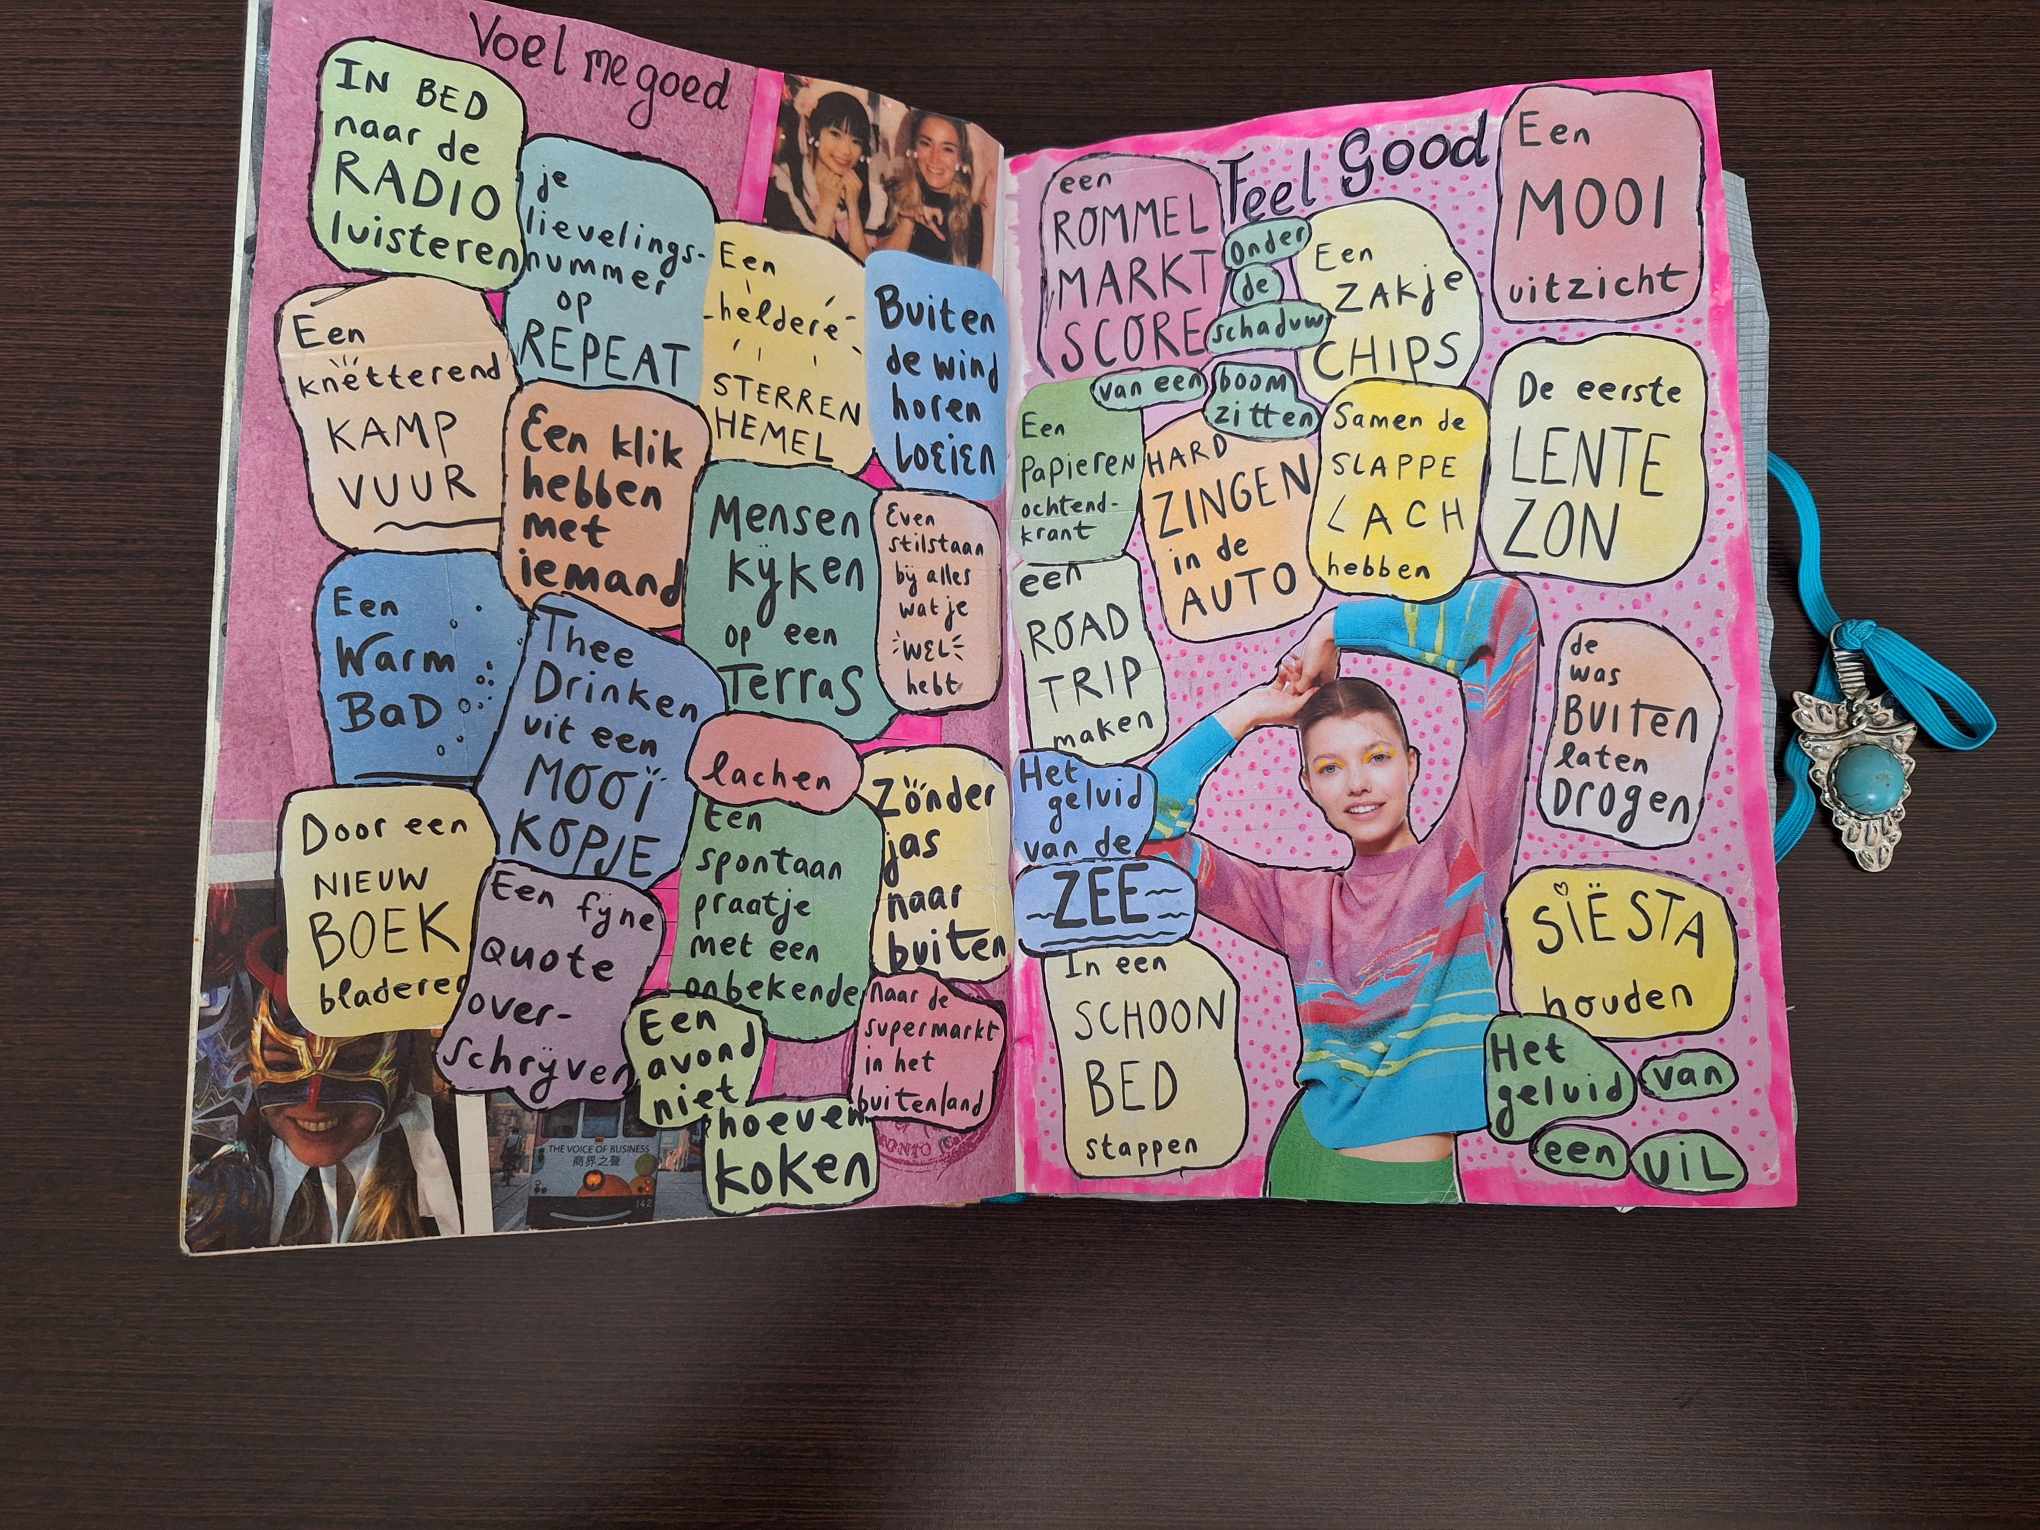 Voel me goed
IN BED
naar de
RADIO
luisteren
je
lievelings-
nummer
op
REPEAT
Een
heldere
STERREN
HEMEL
Buiten
de wind
horen
LOEIEN
Een
knetterend
KAMP
VUUR
Een klik
hebben
met
iemand
Mensen
kijken
op een
Terras
Even
stilstaan
bij alles
wat je
WEL
hebt
Een
Warm
BaD
Thee
Drinken
uit een
MOOi
KOPJE
lachen
Een
spontaan
praatje
met een
onbekende
Zonder
jas
naar
buiten
Door een
NIEUW
BOEK
bladeren
Een fijne
Quote
over-
schrijven
Een
avond
niet
hoeven
koken
Naar de
supermarkt
in het
buitenland
THE VOICE OF BUSINESS
商界之聲
142
Feel Good
een
ROMMEL
MARKT
SCORE
onder
de
schaduw
van een
boom
zitten
Een
ZAKje
CHIPS
Een
MOOI
uitzicht
Een
PapiereN
ochtend-
krant
HARD
ZINGEN
in de
AUTO
Samen de
SLAPPE
LACH
hebben
De eerste
LENTE
ZON
een
ROAD
TRIP
maken
de
was
BUITEN
laten
DROGEN
Het
geluid
van de
ZEE
In een
SCHOON
BED
stappen
SIËSTA
houden
Het
geluid
van
een
UIL